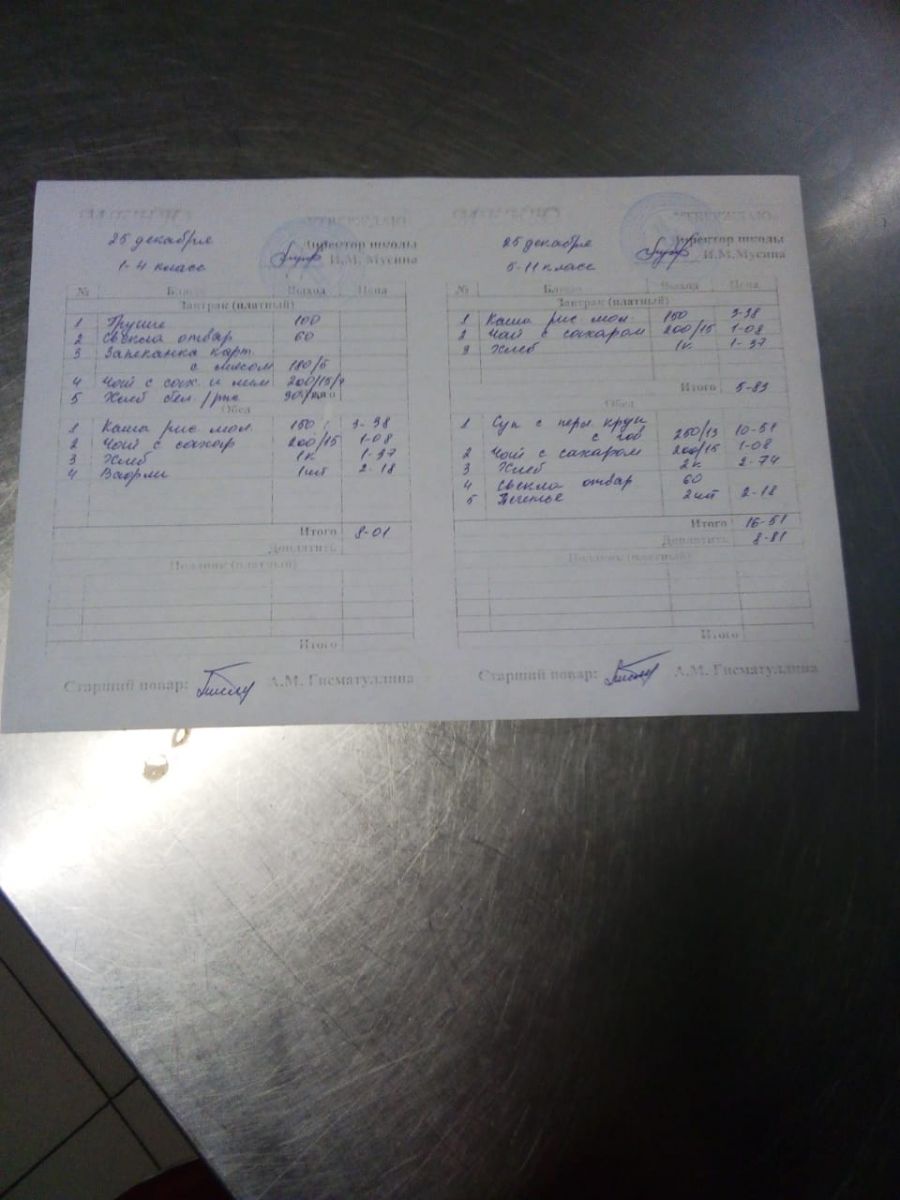 УТВЕРЖДАЮ
25 декабря
Директор школы
1-4 класс
И.М. Мусина
№ Блюдо Выход Цена
Завтрак (платный)
1 Груша 100
2 Свекла отвар 60
3 Запеканка карт.
с мясом 180/5
4 Чай с сах. и лим 200/15/7
5 Хлеб бел./рж.
Обед
1 Каша рис мол. 150 3-38
2 Чай с сахар 200/15 1-08
3 Хлеб 1к 1-37
4 Вафли 1шт 2-18
Итого 8-01
Доплатить
Полдник (платный)
Итого
Старший повар: А.М. Гисматуллина
УТВЕРЖДАЮ
25 декабря
Директор школы
5-11 класс
И.М.Мусина
№ Блюдо Выход Цена
Завтрак (платный)
1 Каша рис мол. 150 3-38
2 Чай с сахаром 200/15 1-08
3 Хлеб 1к. 1-37
Итого 5-83
Обед
1 Суп с перл. круп
с гов 250/13 10-51
2 Чай с сахаром 200/15 1-08
3 Хлеб 2к. 2-74
4 Свекла отвар 60
5 Печенье 2шт 2-18
Итого 16-51
Доплатить 8-81
Полдник (платный)
Итого
Старший повар: А.М. Гисматуллина